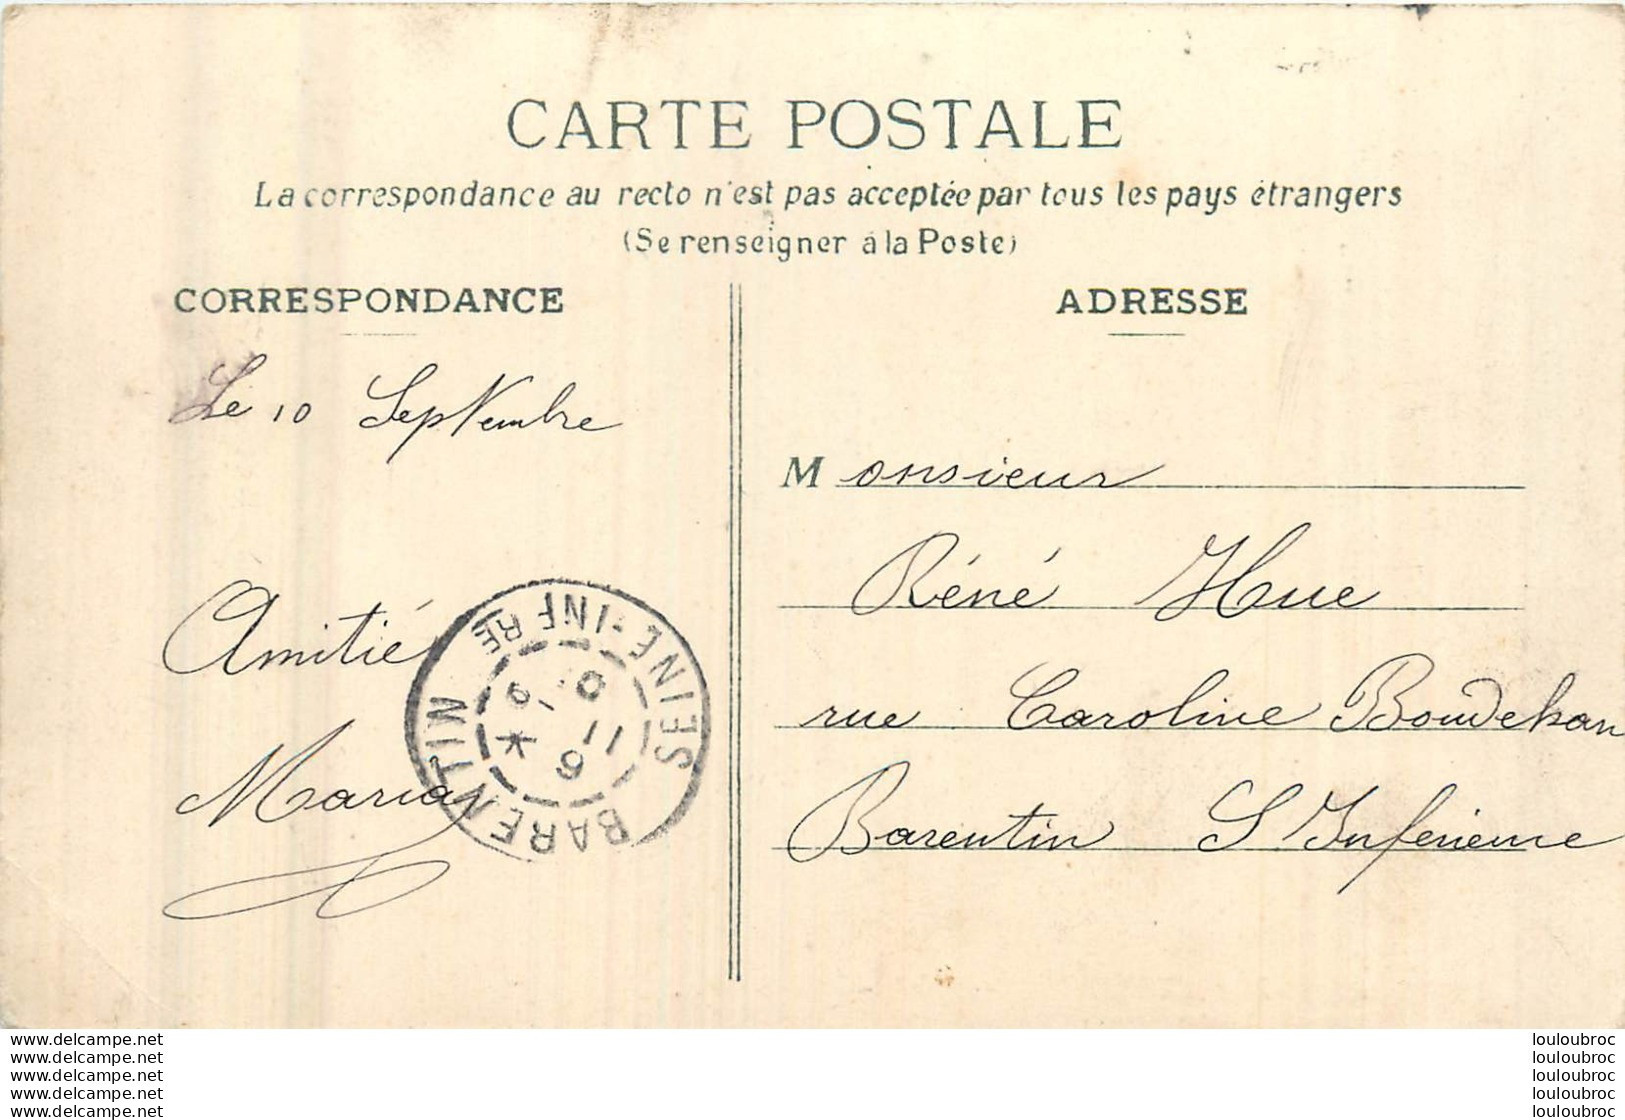 CARTE POSTALE
La correspondance au recto n'est pas acceptée par tous les pays étrangers
(Se renseigner à la Poste)
CORRESPONDANCE
Le 10 Septembre
Amitié
Maria
BARENTIN SEINE-INFRE
ADRESSE
Monsieur
Réné Hue
rue Caroline
Barentin S. Inférieure
www.delcampe.net
www.delcampe.net
www.delcampe.net
www.delcampe.net
www.delcampe.net
louloubroc
louloubroc
louloubroc
louloubroc
louloubroc